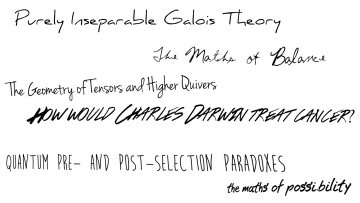 Purely Inseparable Galois Theory
The Maths of Balance
The Geometry of Tensors and Higher Quivers
HOW WOULD CHARLES DARWIN TREAT CANCER?
QUANTUM PRE- AND POST-SELECTION PARADOXES
the maths of possibility